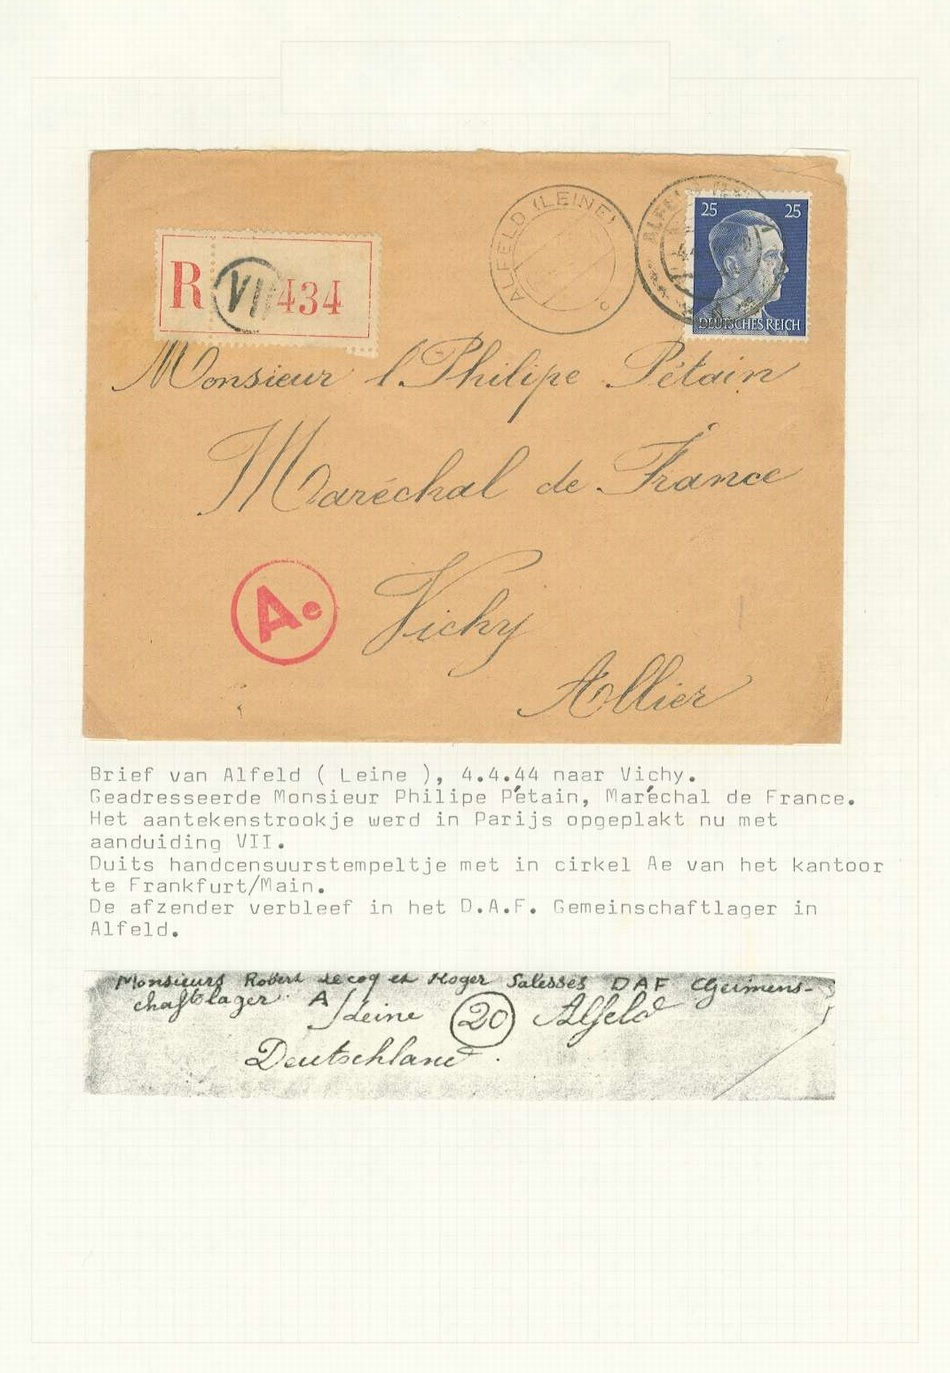 ALFELD (LEINE)
25 25
DEUTSCHES REICH
R VII 434
Monsieur l. Philipe Pétain
Maréchal de France
Ae
Vichy
Allier
Brief van Alfeld ( Leine ), 4.4.44 naar Vichy.
Geadresseerde Monsieur Philipe Pétain, Maréchal de France.
Het aantekenstrookje werd in Parijs opgeplakt nu met
aanduiding VII.
Duits handcensuurstempeltje met in cirkel Ae van het kantoor
te Frankfurt/Main.
De afzender verbleef in het D.A.F. Gemeinschaftlager in
Alfeld.
Monsieurs Robert Lecoq et Roger Salesses DAF Geimens-
chaftslager A/Leine 20 Alfeld
Deutschland.